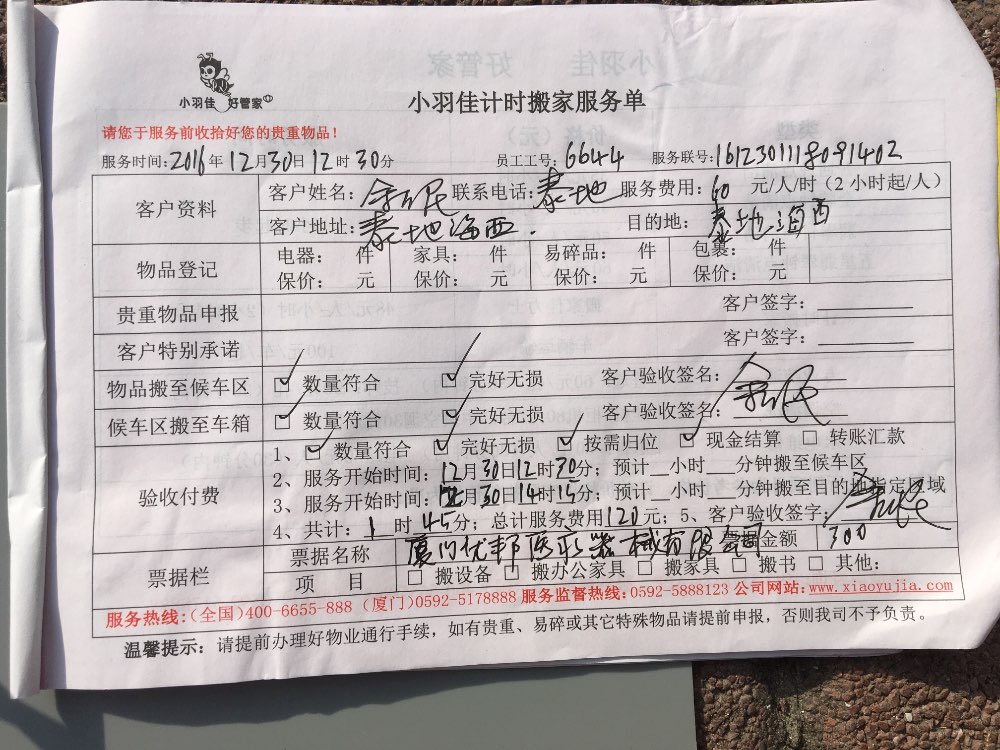 小羽佳 好管家
小羽佳计时搬家服务单
请您于服务前收拾好您的贵重物品！
服务时间：2016年12月30日12时30分 员工工号：6644 服务联号：1612301118091402
客户资料 客户姓名： 联系电话：泰地 服务费用：60 元/人/时（2小时起/人）
客户地址：泰地海西． 目的地：泰地海西
物品登记 电器： 件 家具： 件 易碎品： 件 包裹： 件
保价： 元 保价： 元 保价： 元 保价： 元
贵重物品申报 客户签字：
客户特别承诺 客户签字：
物品搬至候车区 ☑ 数量符合 ☑ 完好无损 客户验收签名：
候车区搬至车箱 ☑ 数量符合 ☑ 完好无损 客户验收签名：
验收付费 1、☑ 数量符合 ☑ 完好无损 ☑ 按需归位 ☑ 现金结算 □ 转账汇款
2、服务开始时间：12月30日12时30分；预计__小时___分钟搬至候车区
3、服务开始时间：12月30日14时15分；预计__小时___分钟搬至目的地指定区域
4、共计：1时45分；总计服务费用120元；5、客户验收签字：
票据栏 票据名称 厦门优邦医疗器械有限公司 金额 300
项 目 □ 搬设备 □ 搬办公家具 □ 搬家具 □ 搬书 □ 其他：
服务热线：(全国)400-6655-888 (厦门)0592-5178888 服务监督热线：0592-5888123 公司网站：www.xiaoyujia.com
温馨提示：请提前办理好物业通行手续，如有贵重、易碎或其它特殊物品请提前申报，否则我司不予负责。